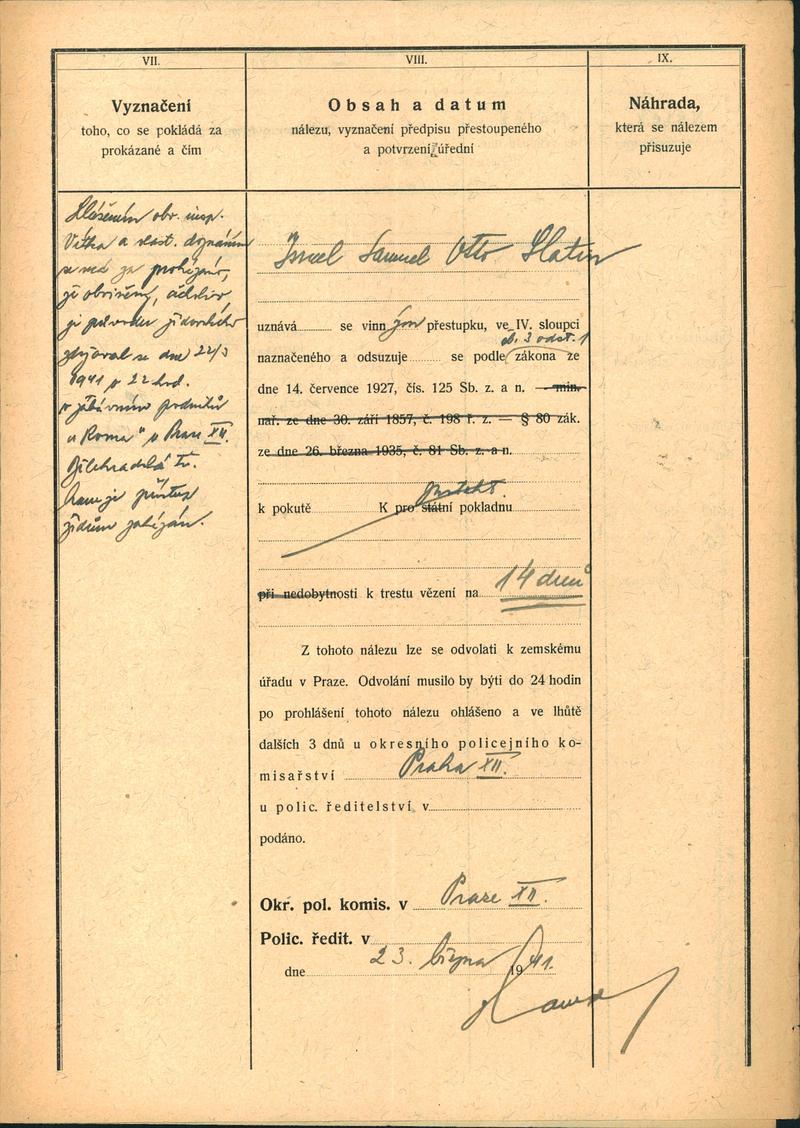 VII.
Vyznačení
toho, co se pokládá za
prokázané a čím
Hlášením obv. insp.
Vítka a vlast. doznáním
se má za prokázáno,
že obviněný, ačkoliv
je původu židovského
zdržoval se dne 22/3
1941 o 22 hod.
v zábavním podniku
"Roma" v Praze XII.
tř.
kam je přístup
židům zakázán.
VIII.
Obsah a datum
nálezu, vyznačení předpisu přestoupeného
a potvrzení úřední
Israel Samuel Otto Slatin
uznává se vinným přestupku, ve IV. sloupci
čl. 3 odst. 1
naznačeného a odsuzuje se podle zákona ze
dne 14. července 1927, čís. 125 Sb. z. a n. — min.
nař. ze dne 30. září 1857, č. 198 ř. z. — § 80 zák.
ze dne 26. března 1935, č. 81 Sb. z. a n.
k pokutě K pro státní pokladnu
při nedobytnosti k trestu vězení na 14 dnů
Z tohoto nálezu lze se odvolati k zemskému
úřadu v Praze. Odvolání musilo by býti do 24 hodin
po prohlášení tohoto nálezu ohlášeno a ve lhůtě
dalších 3 dnů u okresního policejního ko-
misařství Praha XII.
u polic. ředitelství v
podáno.
Okř. pol. komis. v Praze XII.
Polic. ředit. v
dne 23. března 1941.
IX.
Náhrada,
která se nálezem
přisuzuje